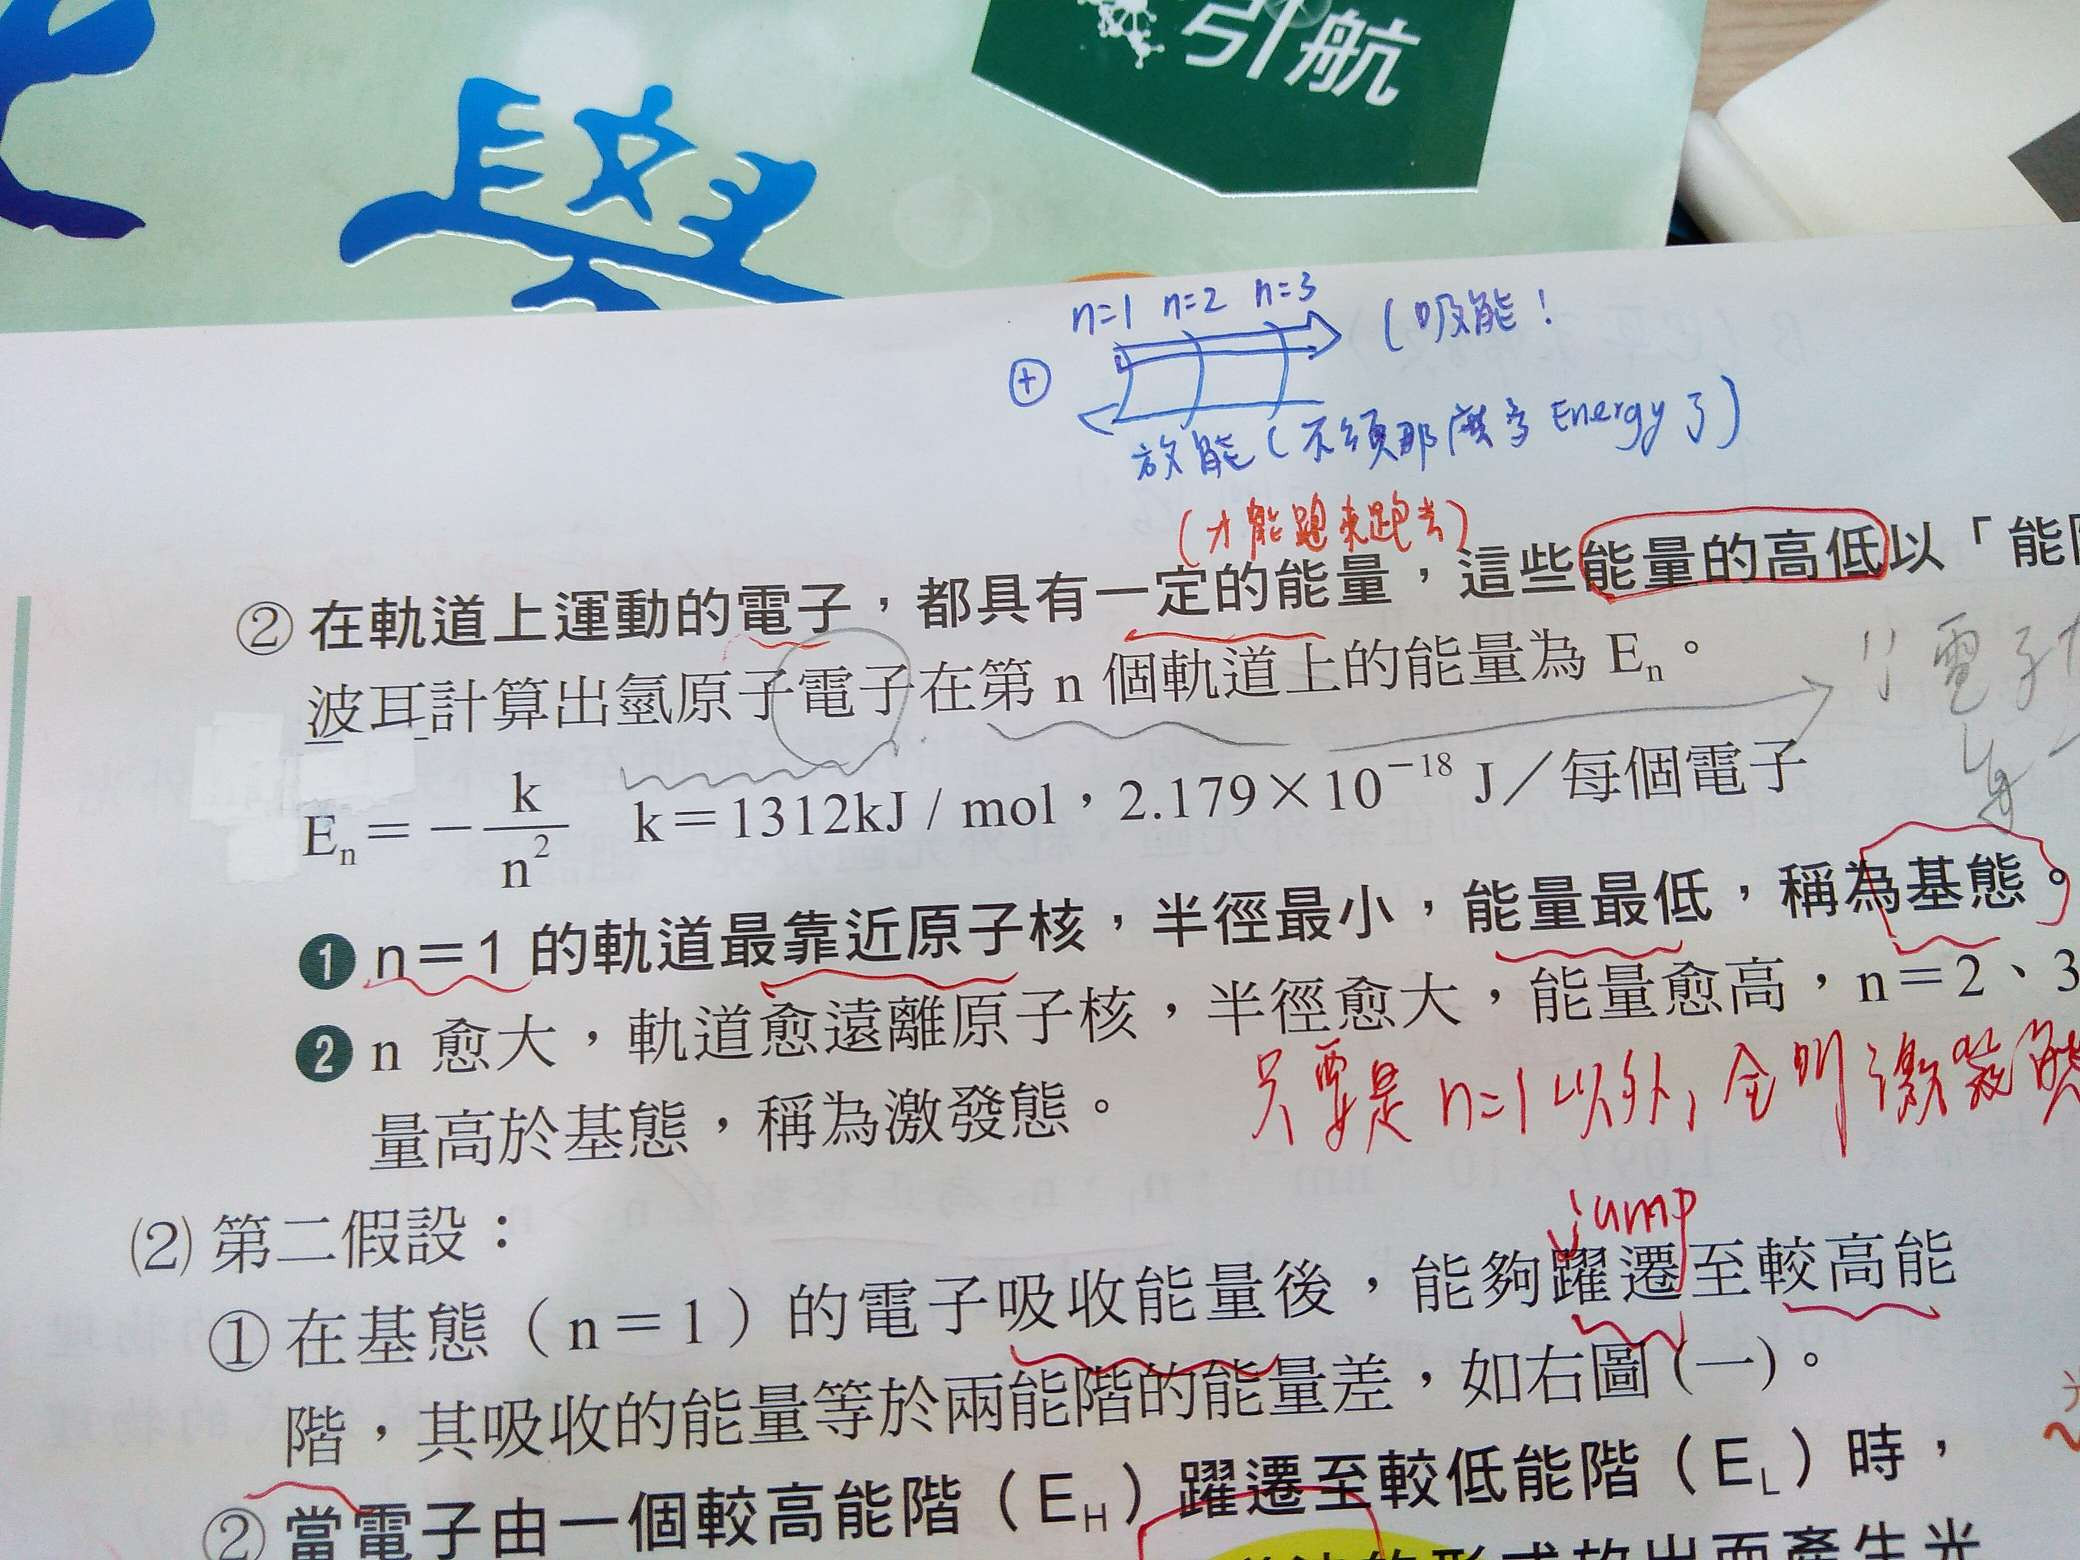 引航
學
n=1 n=2 n=3
(吸能!
⊕
放能(不須那麼多Energy了)
(才能跑來跑去)
②在軌道上運動的電子，都具有一定的能量，這些能量的高低以「能
波耳計算出氫原子電子在第 n 個軌道上的能量為 Eₙ。
電子
Eₙ=-k/n² k=1312kJ / mol，2.179×10⁻¹⁸ J／每個電子
❶ n=1 的軌道最靠近原子核，半徑最小，能量最低，稱為基態。
❷ n 愈大，軌道愈遠離原子核，半徑愈大，能量愈高，n=2、3
只要是 n=1 以外，全叫激發態
量高於基態，稱為激發態。
(2)第二假設：
jump
①在基態（n=1）的電子吸收能量後，能夠躍遷至較高能
階，其吸收的能量等於兩能階的能量差，如右圖(一)。
光
②當電子由一個較高能階（E_H）躍遷至較低能階（E_L）時，
的形式放出而產生光